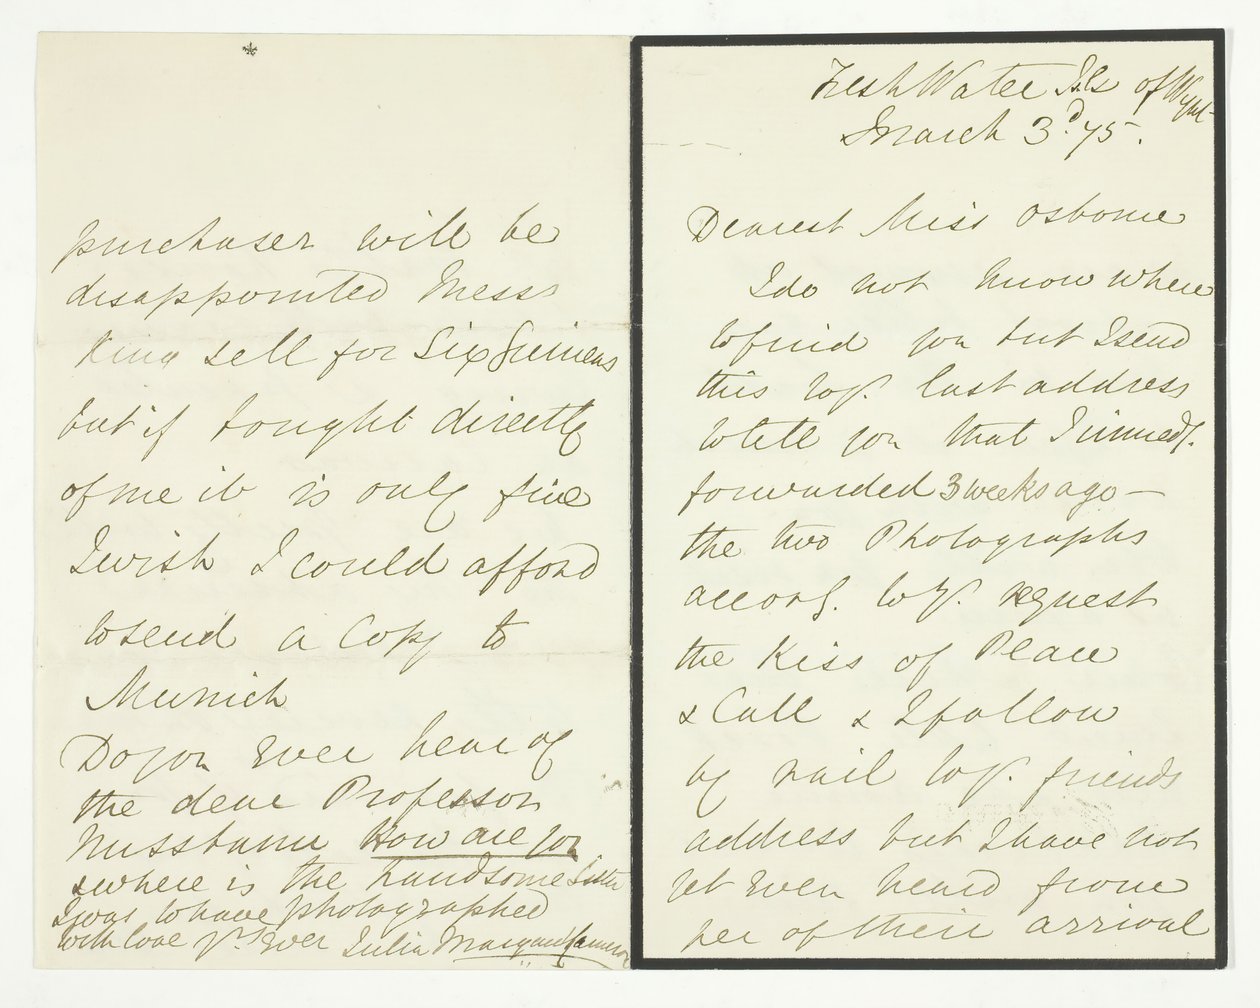 Fresh Water Isle of Wight
March 3d. 75.
Dearest Miss Osborne
I do not know where
to find you but I send
this to yr. last address
to tell you that I immedy.
forwarded 3 weeks ago —
the two Photographs
accordg. to yr. request
the Kiss of Peace
& Call & I follow
by rail to yr. friends
address but I have not
yet even heard from
her of their arrival
purchaser will be
disappointed Messrs
King sell for Six Guineas
but if bought directly
of me it is only five
I wish I could afford
to send a Copy to
Munich
Do you ever hear of
the dear Professor
Nussbaum How are you
& where is the handsome Sister
I was to have photographed
with love yrs. ever Julia Margaret Cameron